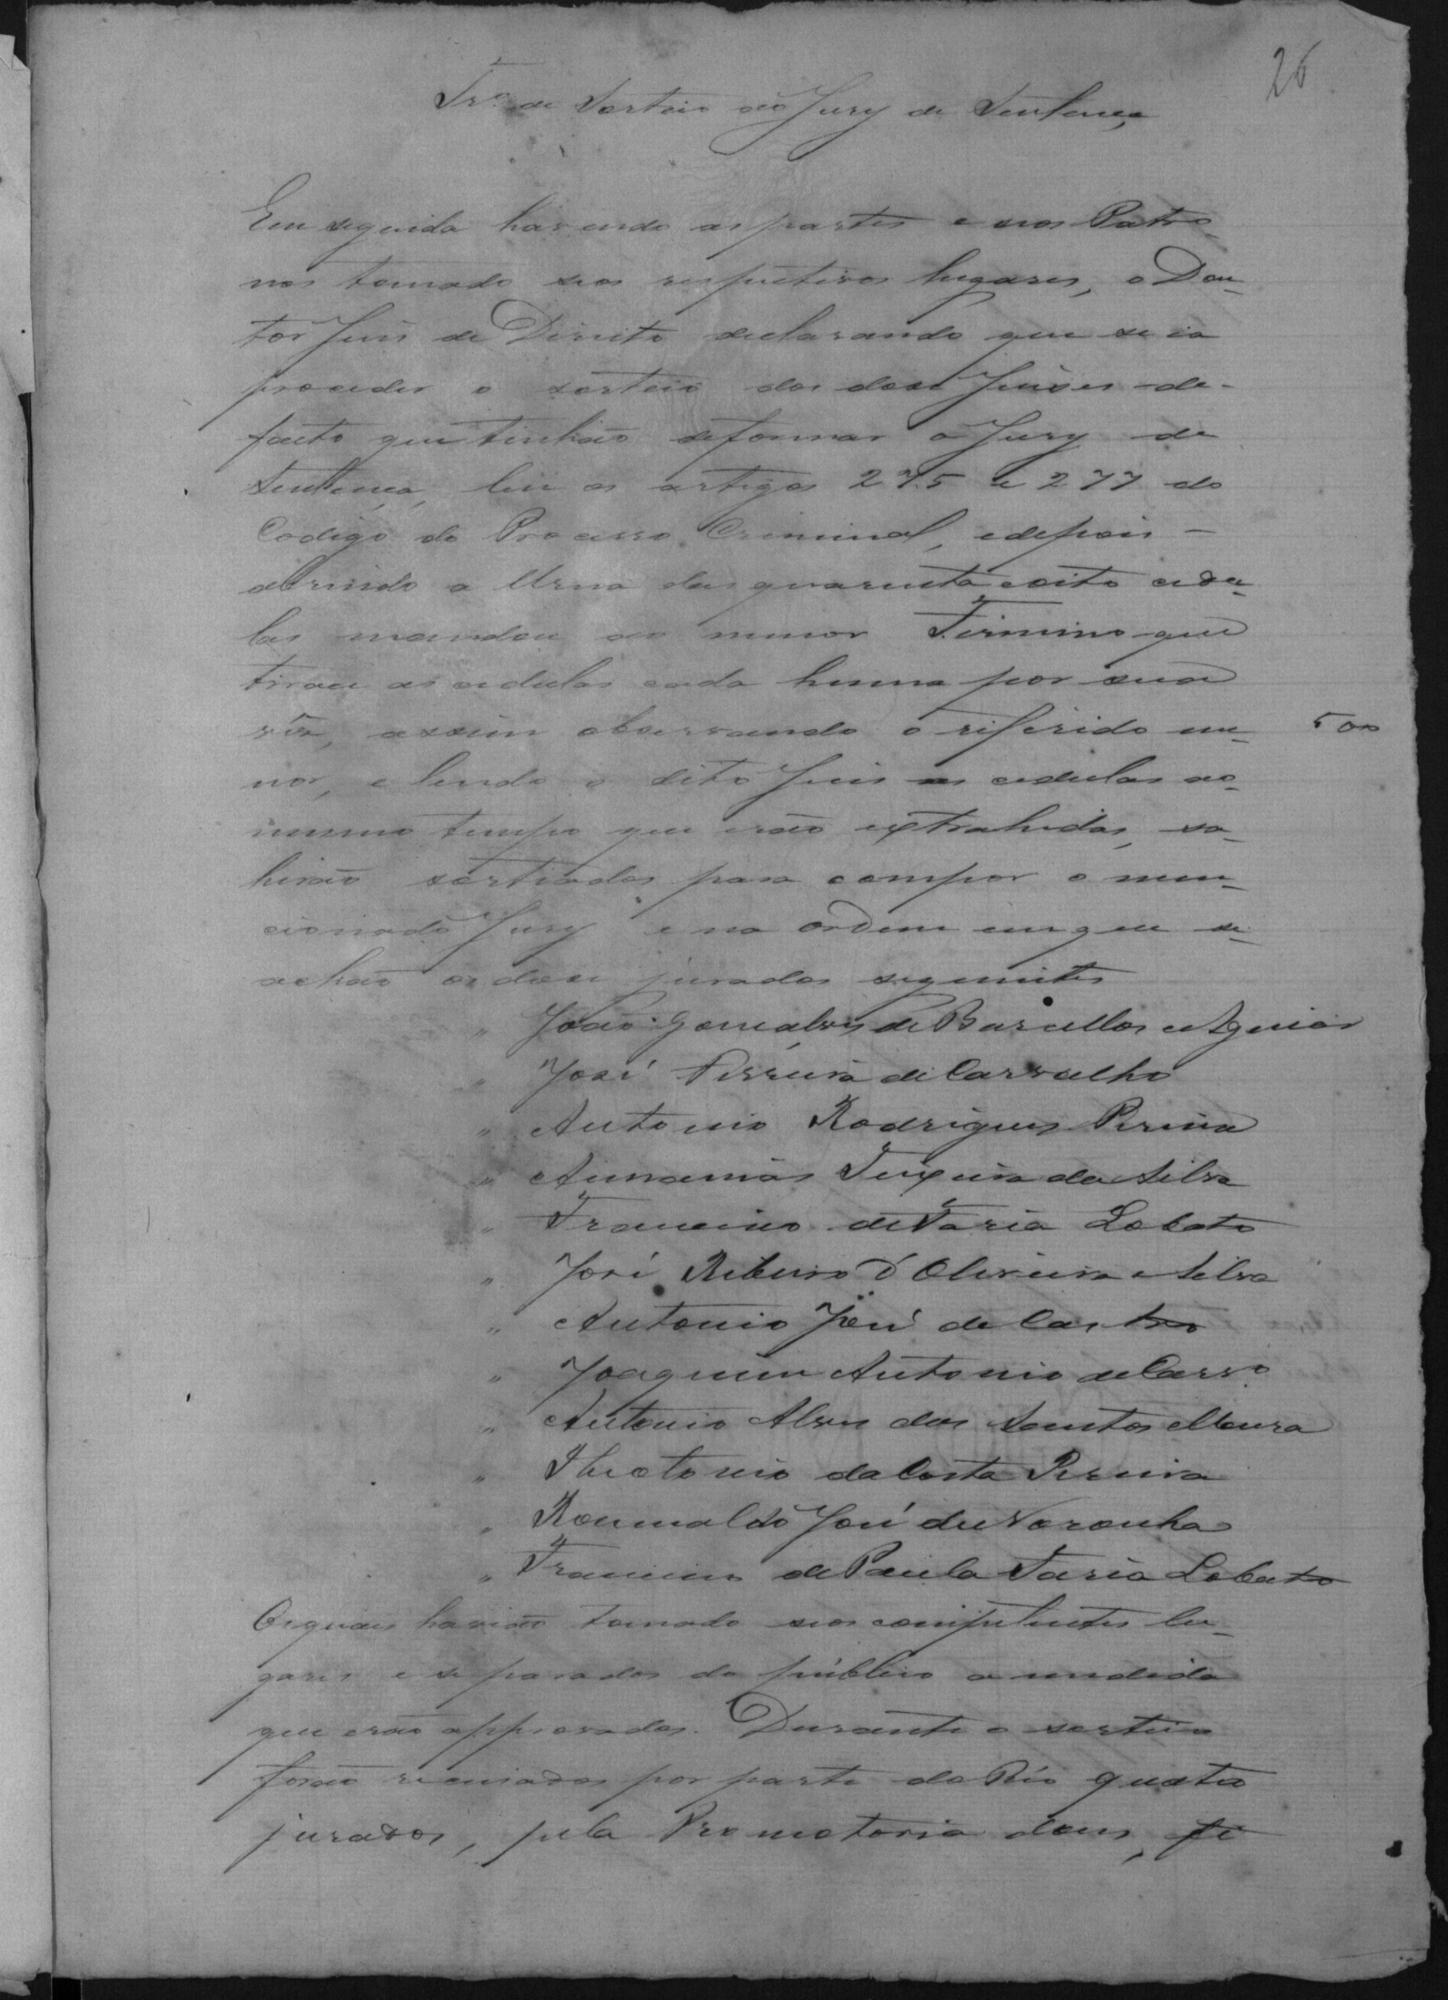 26
Trº de Sorteio do Jury de Sentença
Em seguida havendo as partes e seos Patro-
nos tomado seos respectivos lugares, o Dou-
tor Juis de Direito declarando que se ia
proceder o sorteio dos dose Juises de-
facto que tinhão deformar o Jury de
Sentença, leu os artigos 275 e 277 do
Codigo do Processo Criminal, edepois -
abrindo a Urna das quarenta eoito cedu-
las mandou ao menor Firmino que
tirou as cedulas cada huma por sua
vês, assim observando o referido me-
nor, e lendo o dito Juis as cedulas ao
mesmo tempo que erão extrahidas, sa-
hirão sorteados para compor o men-
cionado Jury e na ordem emque se-
achão os dose jurados seguintes
" João Gonçalves de Barcellos e Aguiar
" José Ferreira de Carvalho
" Antonio Rodrigues Pereira
" Annanias Teixeira da Silva
" Francisco de Faria Lobato
" José Ribeiro d'Oliveira e Silva
" Antonio José de Castro
" Joaquim Antonio de Carvº
" Antonio Alves dos Santos Moura
" Theotonio da Costa Pereira
" Romualdo José de Noronha
" Francisco de Paula Faria Lobato
Osquaes havião tomado seos competentes lu-
gares e separados do publico a medida
que erão approvados. Durante o sorteio
forão recusados por parte do Réo quatro
jurados, pela Promotoria dous, fi
500